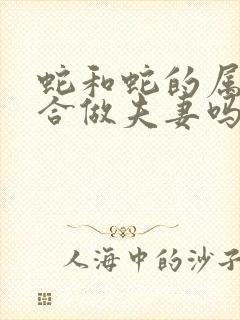 蛇和蛇的属
合做夫妻吗
人海中的沙子